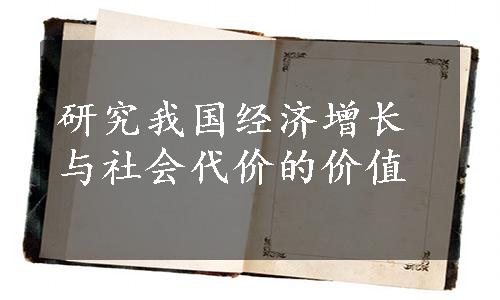 研究我国经济增长
与社会代价的价值